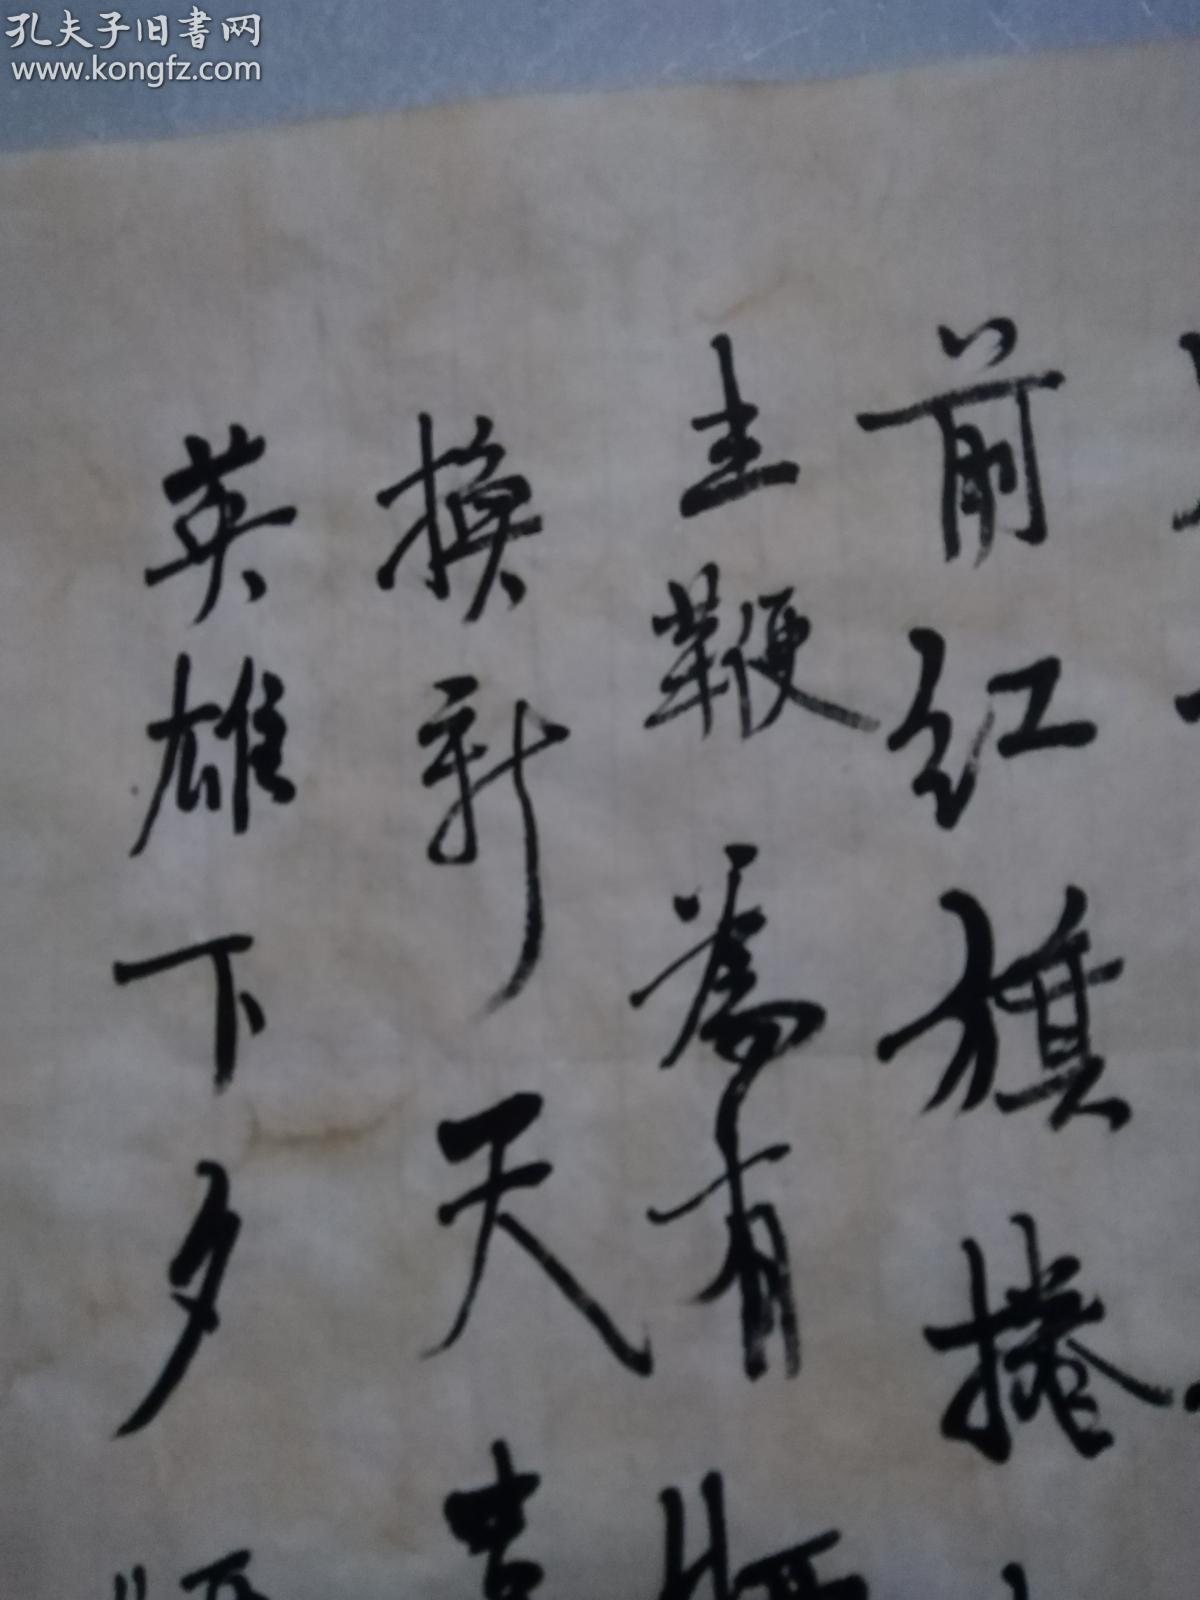 孔夫子旧書网
www.kongfz.com
前红旗捲
主鞭為有
換新天
英雄下夕